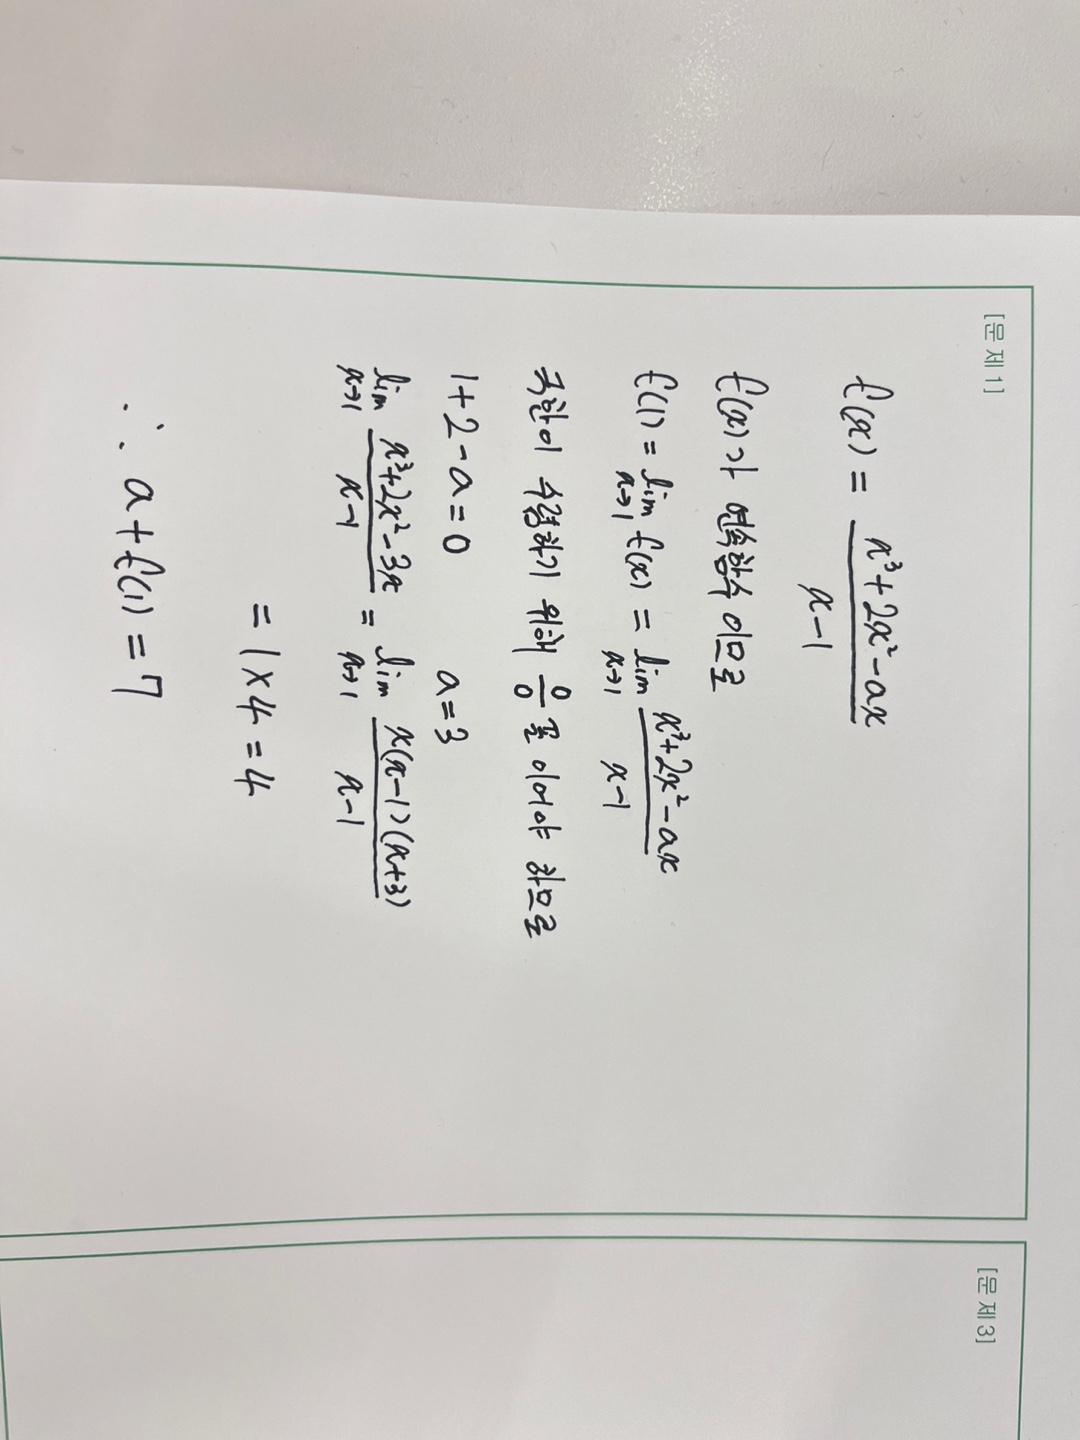 [문 제 1]
f(x) = \frac{x³+2x²-ax}{x-1}
f(x)가 연속함수 이므로
f(1) = \lim_{x→1} f(x) = \lim_{x→1} \frac{x³+2x²-ax}{x-1}
극한이 수렴하기 위해 \frac{0}{0} 꼴 이어야 하므로
1+2-a=0 a=3
\lim_{x→1} \frac{x³+2x²-3x}{x-1} = \lim_{x→1} \frac{x(x-1)(x+3)}{x-1}
= 1×4 = 4
∴ a+f(1) = 7
[문 제 3]